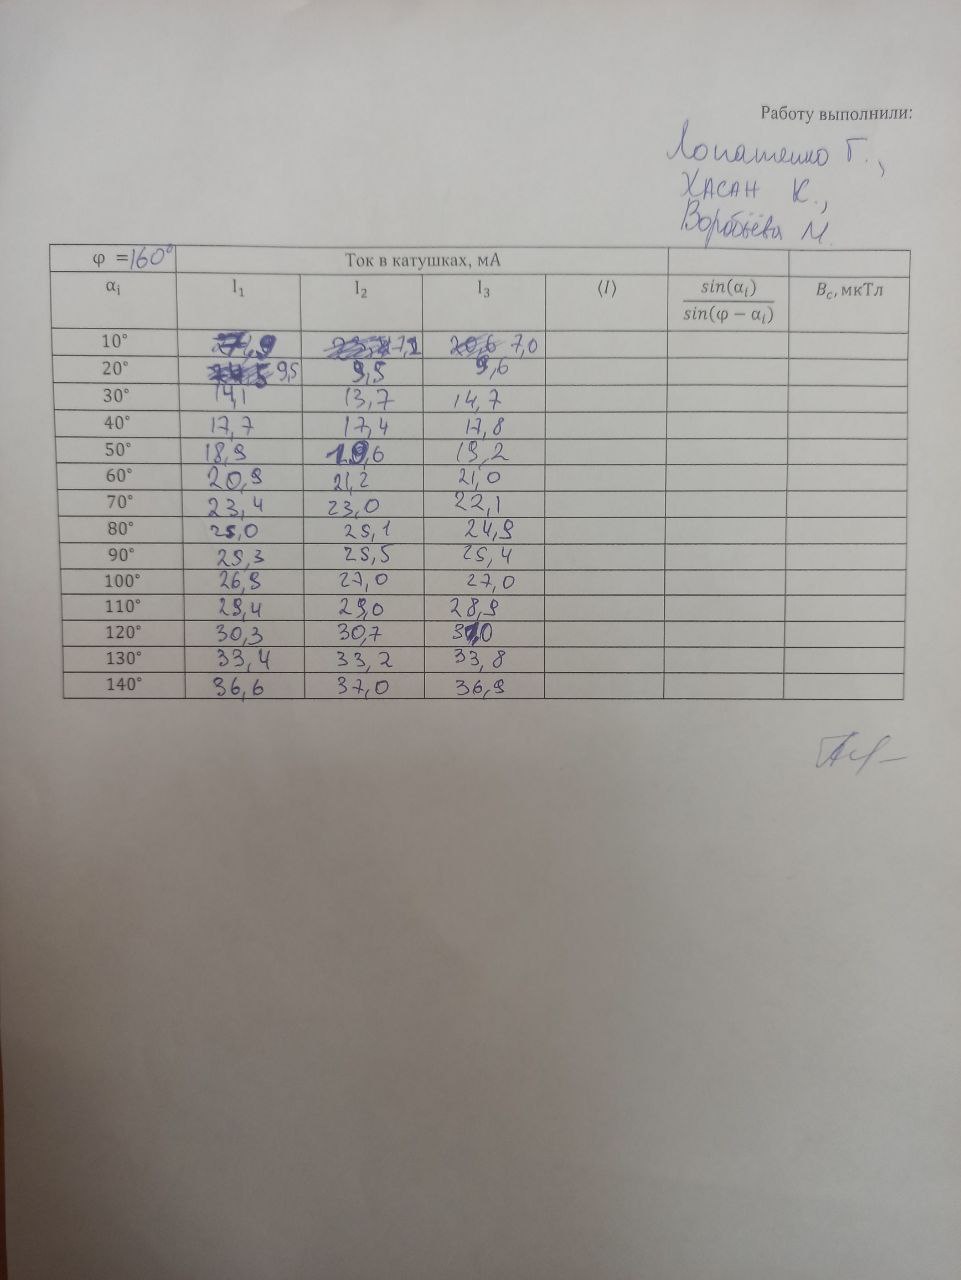 Работу выполнили:
Лопатенко Г.,
Хасан К.,
Воробьёва М.
φ =160° Ток в катушках, мА
αᵢ I₁ I₂ I₃ ⟨I⟩ sin(αᵢ)/sin(φ − αᵢ) B_c, мкТл
10° 7,9 7,1 7,0
20° 9,5 9,5 9,6
30° 14,1 13,7 14,7
40° 17,7 17,4 17,8
50° 18,9 19,6 19,2
60° 20,9 21,2 21,0
70° 23,4 23,0 22,1
80° 25,0 25,1 24,9
90° 25,3 25,5 25,4
100° 26,9 27,0 27,0
110° 29,4 29,0 28,9
120° 30,3 30,7 31,0
130° 33,4 33,2 33,8
140° 36,6 37,0 36,9